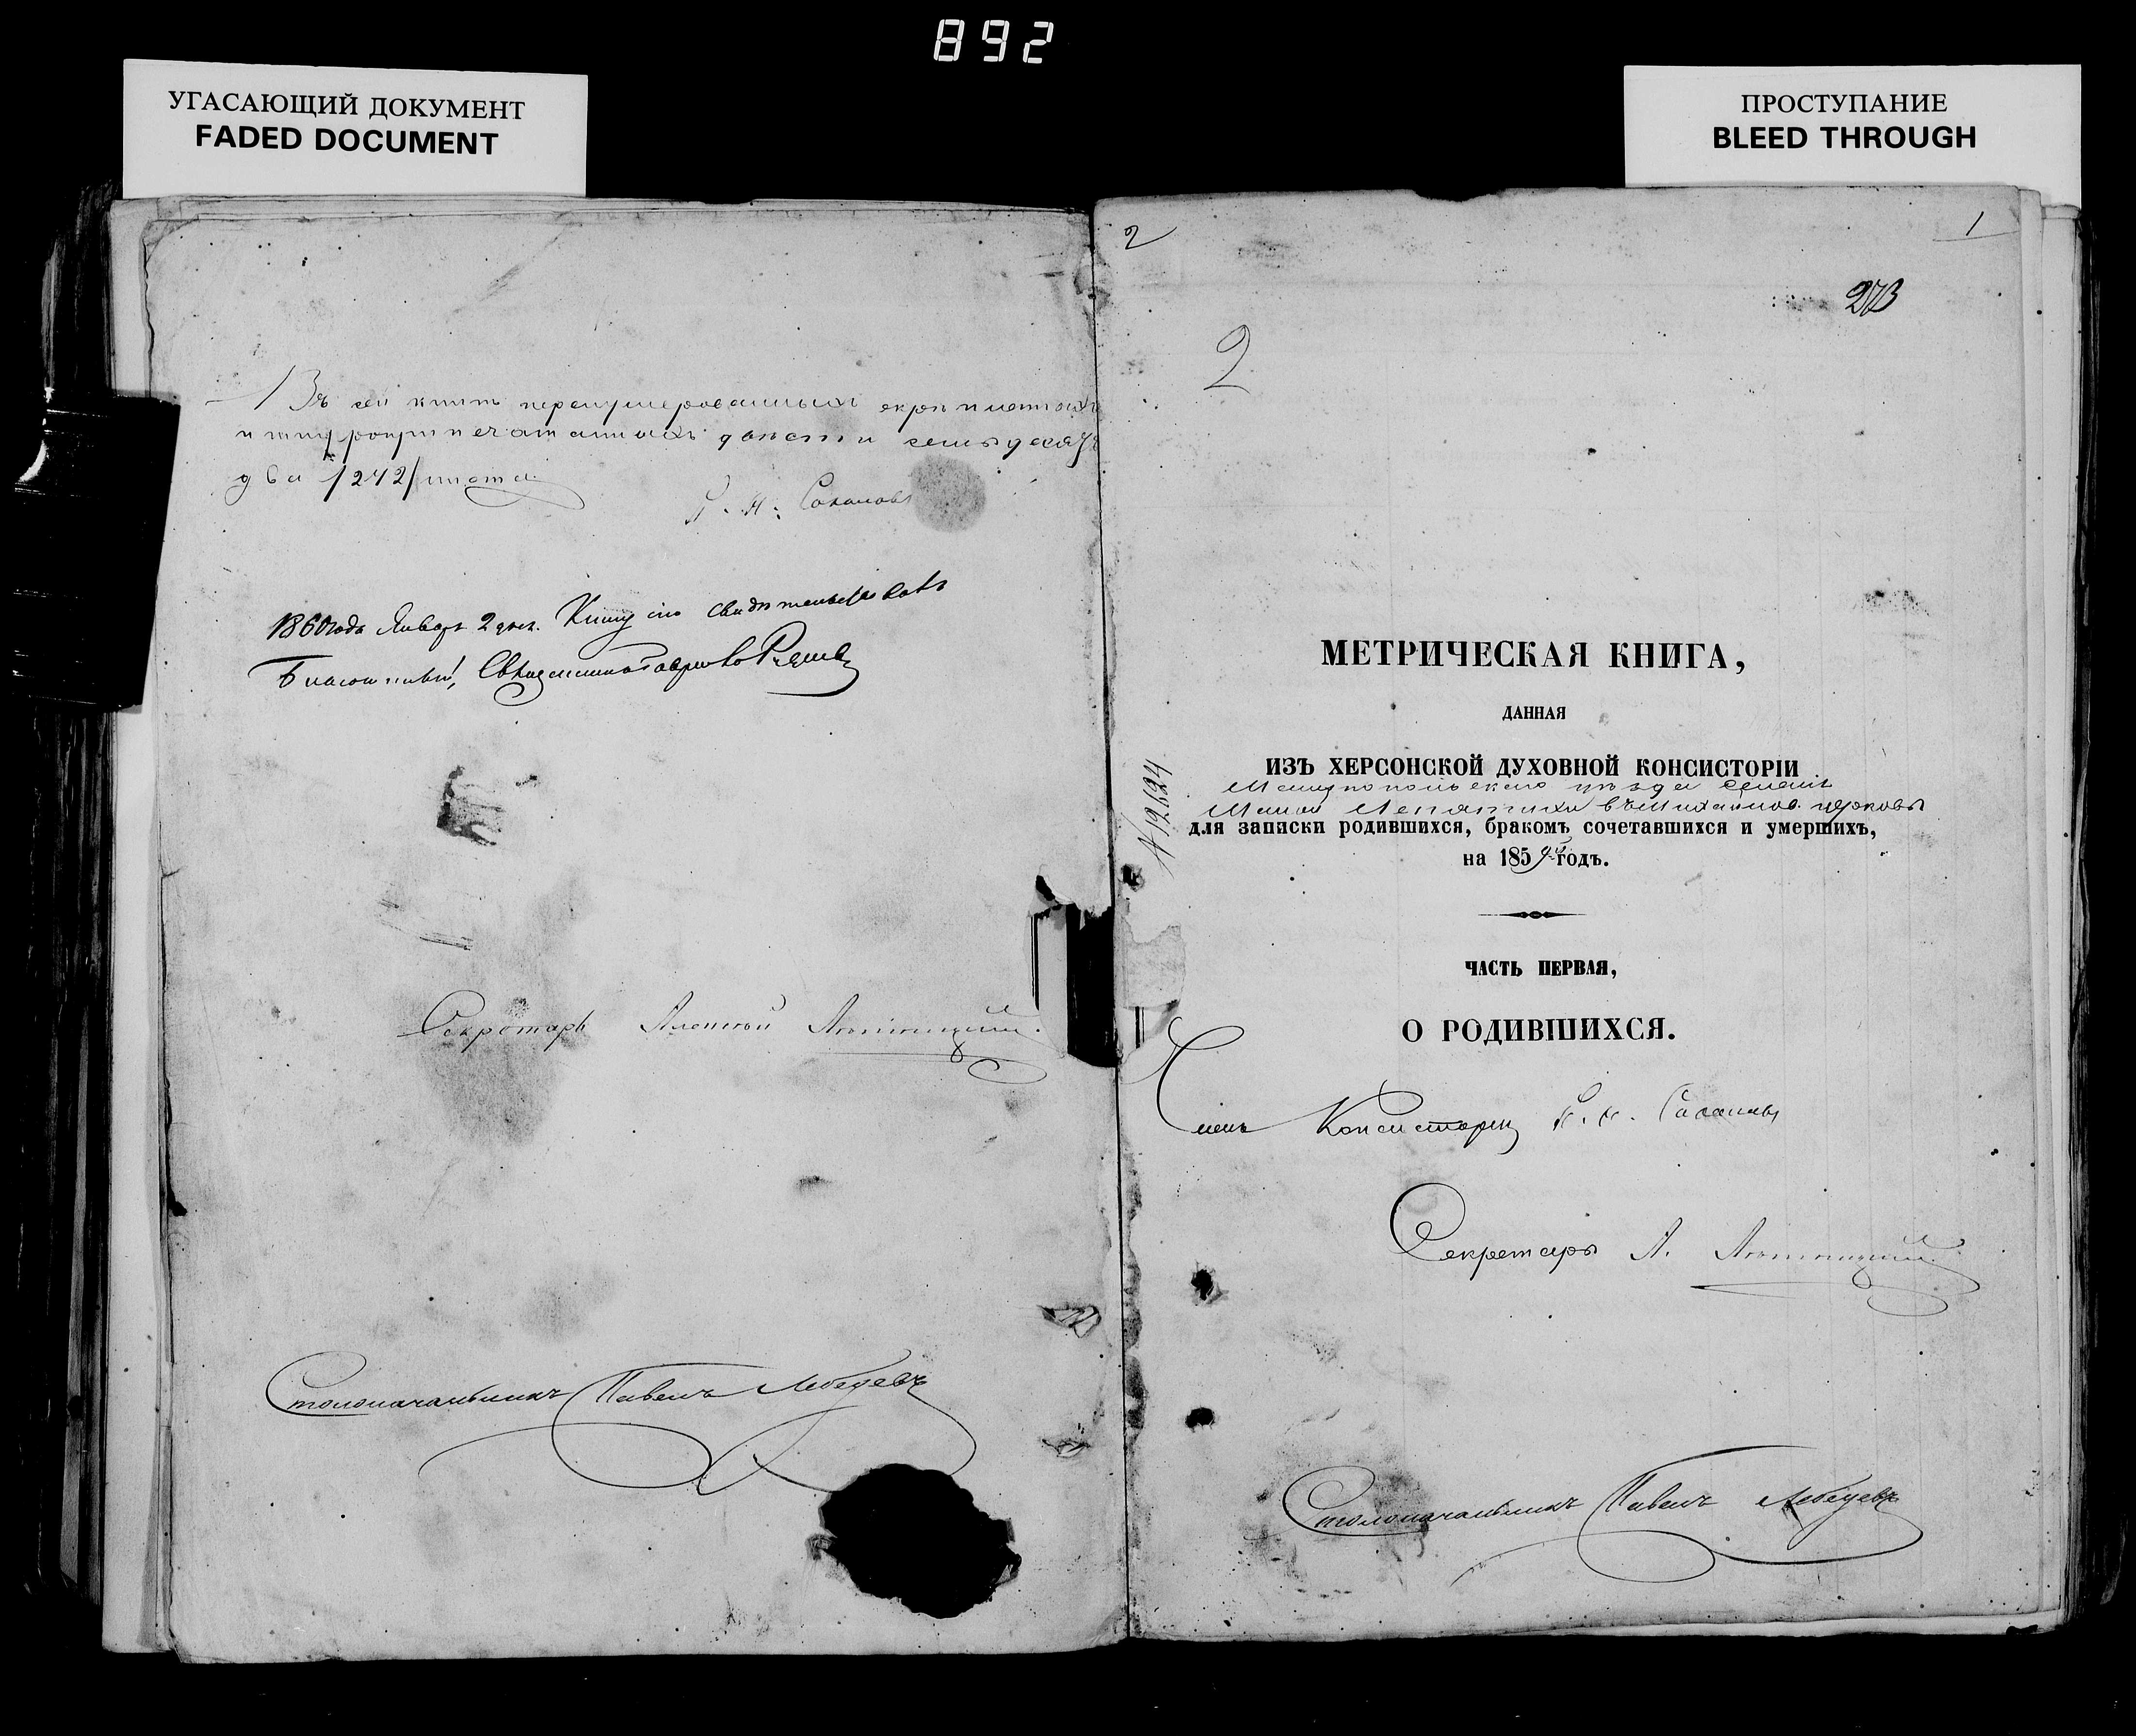 892
УГАСАЮЩИЙ ДОКУМЕНТ
FADED DOCUMENT
ПРОСТУПАНИЕ
BLEED THROUGH
Въ сей книгѣ перенумерованныхъ скрѣпленныхъ
и шнуроприпечатанныхъ двѣсти семьдесятъ
два /272/ листа
Соколовъ
1860 года Января 2 дня. Книгу сію свидѣтельствовалъ
Благочинный, Священникъ
Секретарь Алексей
Столоначальникъ Павелъ Лебедевъ
2
1
273
2
МЕТРИЧЕСКАЯ КНИГА,
ДАННАЯ
ИЗЪ ХЕРСОНСКОЙ ДУХОВНОЙ КОНСИСТОРІИ
уѣзда
Малой Лепатихи церковь
№ 12624
для записки родившихся, бракомъ сочетавшихся и умершихъ,
на 1859й годъ.
ЧАСТЬ ПЕРВАЯ,
О РОДИВШИХСЯ.
Членъ Консисторіи Соколовъ
Секретарь А.
Столоначальникъ Павелъ Лебедевъ